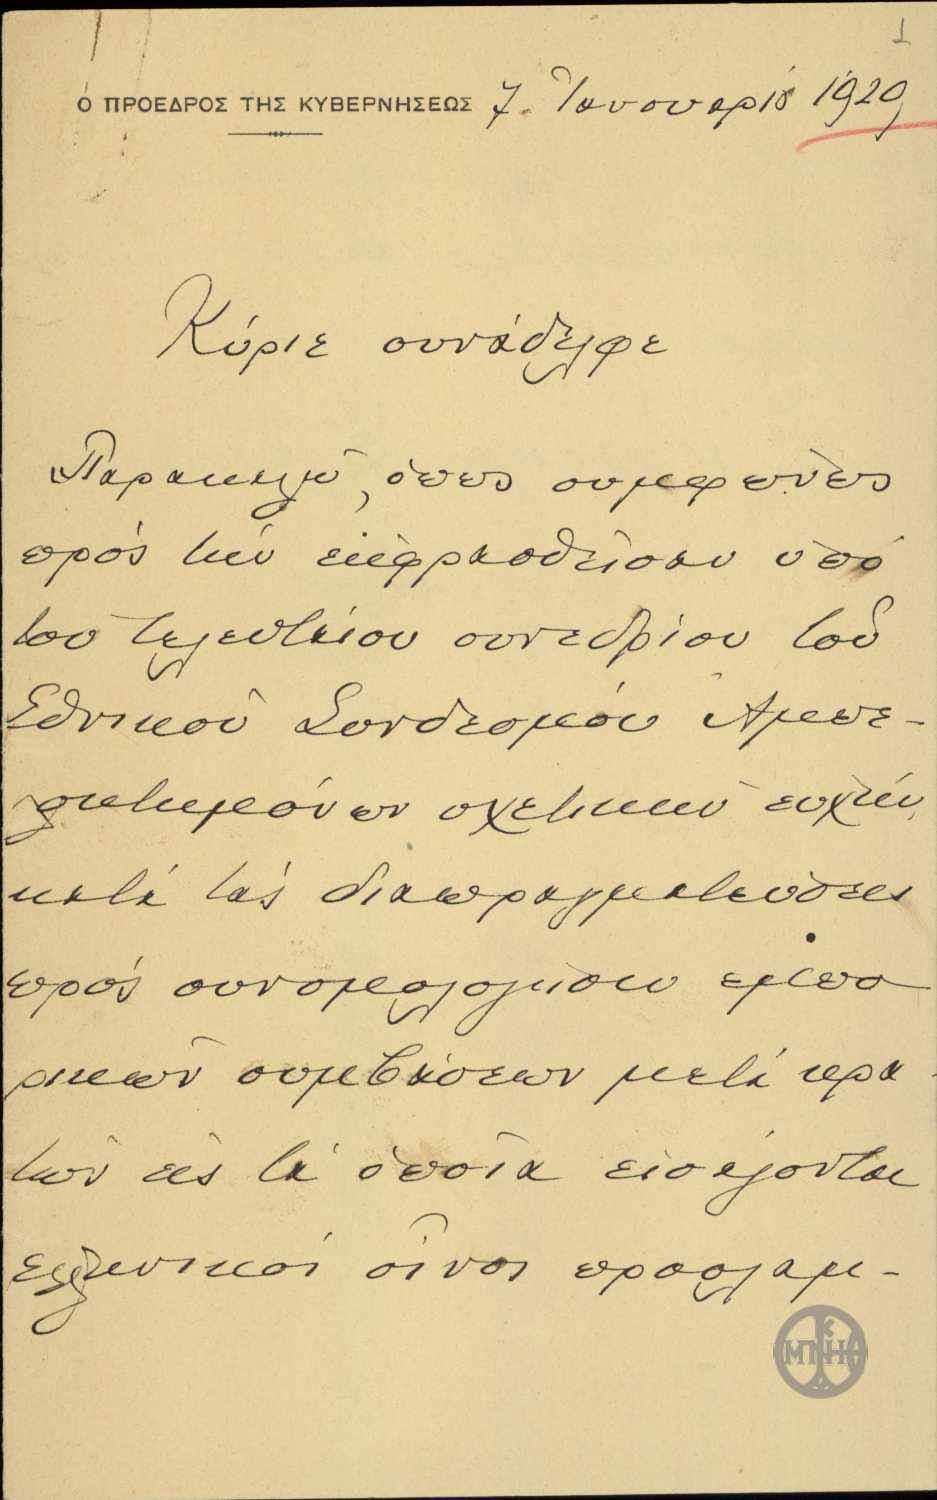 1
Ὁ ΠΡΟΕΔΡΟΣ ΤΗΣ ΚΥΒΕΡΝΗΣΕΩΣ 7 Ἰανουαρίου 1929
Κύριε συνάδελφε
Παρακαλῶ, ὅπως συμφώνως
πρός τήν ἐκφρασθεῖσαν ὑπό
τοῦ τελευταίου συνεδρίου τοῦ
Ἐθνικοῦ Συνδέσμου Ἀμπε-
λοκτημόνων σχετικήν εὐχήν,
κατά τάς διαπραγματεύσεις
πρός συνομολόγησιν ἐμπο
ρικῶν συμβάσεων μετά κρα-
τῶν εἰς τά ὁποῖα εἰσάγονται
ἑλληνικοί οἶνοι προσλαμ-
ΜΠΝΗΑ